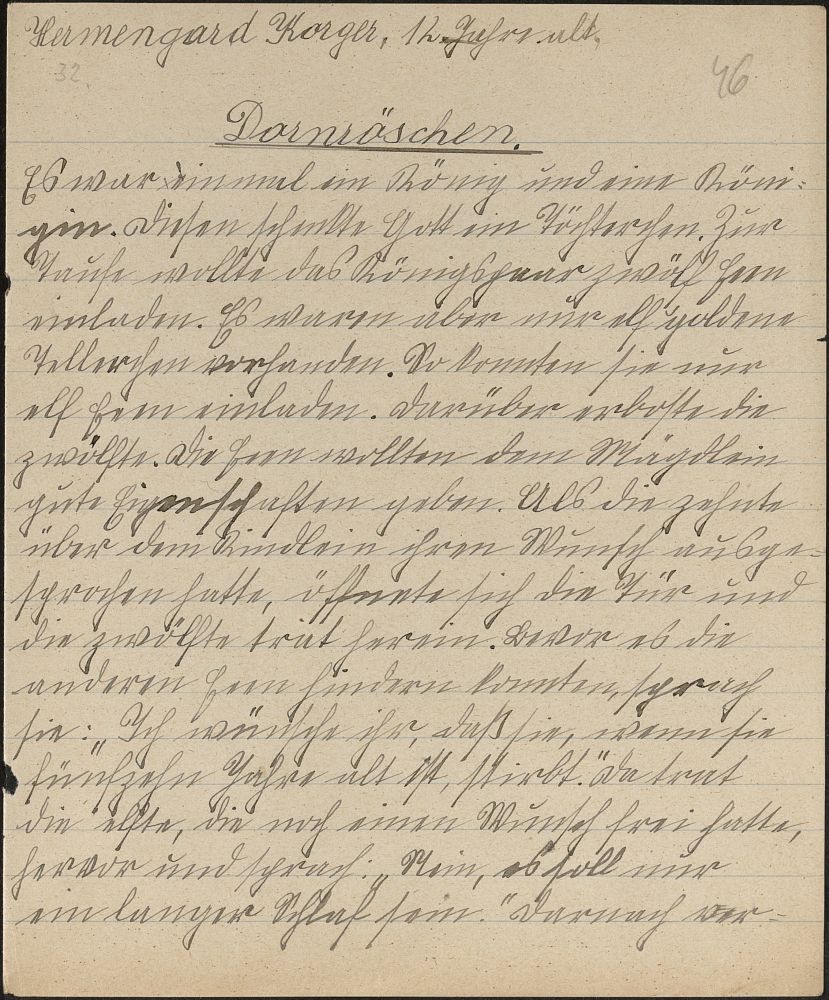 Hermengard Korger, 12 Jahre alt,
32.
46
Dornröschen.
Es war einmal ein König und eine Köni-
gin. Diesen schenkte Gott ein Töchterchen. Zur
Taufe wollte das Königspaar zwölf Feen
einladen. Es waren aber nur elf goldene
Tellerchen vorhanden. So konnten sie nur
elf Feen einladen. Darüber erboste die
zwölfte. Die Feen wollten dem Mägdlein
gute Eigenschaften geben. Als die zehnte
über dem Kindlein ihren Wunsch ausge-
sprochen hatte, öffnete sich die Tür und
die zwölfte trat herein. Bevor es die
anderen Feen hindern konnten, sprach
sie: „Ich wünsche ihr, daß sie, wenn sie
fünfzehn Jahre alt ist, stirbt." Da trat
die elfte, die noch einen Wunsch frei hatte,
hervor und sprach: „Nein, es soll nur
ein langer Schlaf sein." Darnach ver-